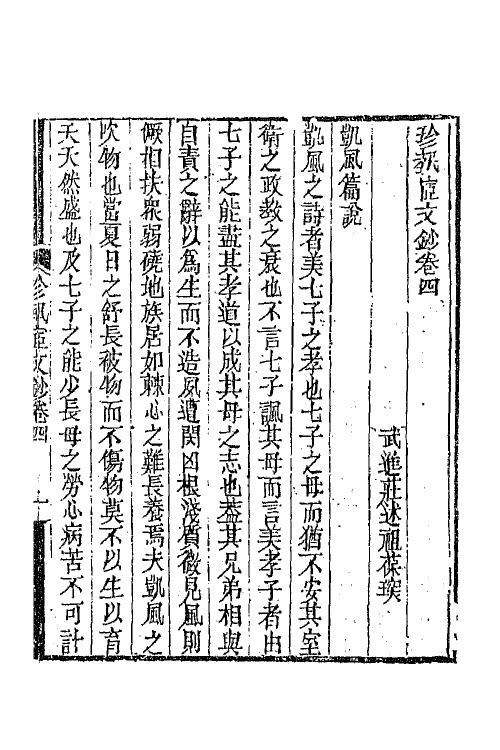 珍埶宧文鈔卷四
武進莊述祖葆琛
凱風篇說
凱風之詩者美七子之孝也七子之母而猶不安其室
衛之政教之衰也不言七子諷其母而言美孝子者由
七子之能盡其孝道以成其母之志也蓋其兄弟相與
自責之辭以為生而不造夙遭閔凶根淺質微見風則
偃相扶衆弱磽地族居如棘心之難長養焉夫凱風之
吹物也當夏日之舒長被物而不傷物莫不以生以育
夭夭然盛也及七子之能少長母之勞心病苦不可計
珍埶宧文鈔卷四
一